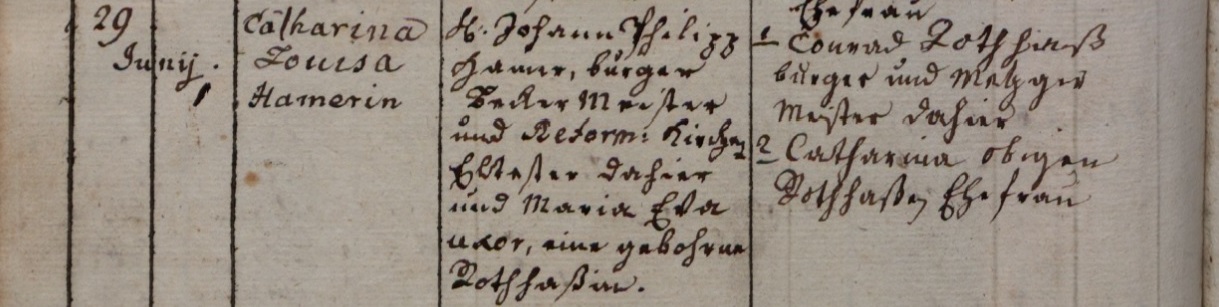 29
Junij.
Catharina
Louisa
Hamerin
H. Johann Philipp
Hamer, burger
Becker Meister
und Reform: Kirchen
Eltester dahier
und Maria Eva
uxor, eine gebohrne
Rothhaßin.
Ehefrau
1 Conrad Rothhaaß
burger und Metzger
Meister dahier
2 Catharina obigen
Rothhaßen Ehefrau